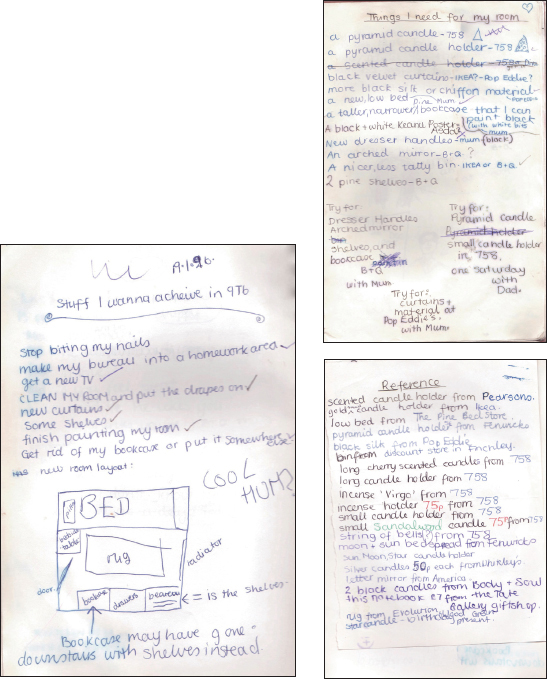 Things I need for my room
a pyramid candle - 758
a pyramid candle holder - 758
a scented candle holder - 758
black velvet curtains - IKEA? - Pop Eddie?
more black silk or chiffon material
a new, low bed - Pine Mum
a taller, narrower bookcase that I can
paint black
(with white bits
mum
A black + white Keanu Poster
Asda
New dresser handles - mum (black)
An arched mirror - B+Q ?
A nicer, less tatty bin. IKEA or B+Q
2 pine shelves - B+Q
Try for:
Dresser Handles
Arched mirror
shelves, and
bookcase
B+Q
with Mum
Try for:
Pyramid Candle
Pyramid holder
small candle holder
in 758,
one Saturday
with
Dad.
Try for:
curtains +
material at
Pop Eddies.
with Mum.
Stuff I wanna acheive in 9Tb
stop biting my nails
make my bureau into a homework area
get a new TV
CLEAN MY ROOM and put the drapes on
new curtains
some shelves
finish painting my room
Get rid of my bookcase or put it somewhere else
new room layout:
COOL
HUH?
BED
table
rug
radiator
door
bookcase
drawers
bureau
= is the shelves.
Bookcase may have gone
downstairs with shelves instead.
Reference
scented candle holder from Pearsons.
gold candle holder from Ikea.
low bed from The Pine Bed Store.
pyramid candle holder from Fenwicks
black silk from Pop Eddie
bin from discount store in Finchley.
long cherry scented candles from 758
long candle holder from 758
incense 'Virgo' from 758
incense holder 75p from 758
small candle holder from 758
small Sandalwood candle 75p from 758
string of bells from 758
moon + sun bedspread from Fenwicks
Sun, Moon, Star candle holder
silver candles 50p each from Huxleys
letter mirror from America.
2 black candles from Body + Soul
this notebook £7 from The Tate
Gallery giftshop.
rug from Evolution
star candle - birthday present